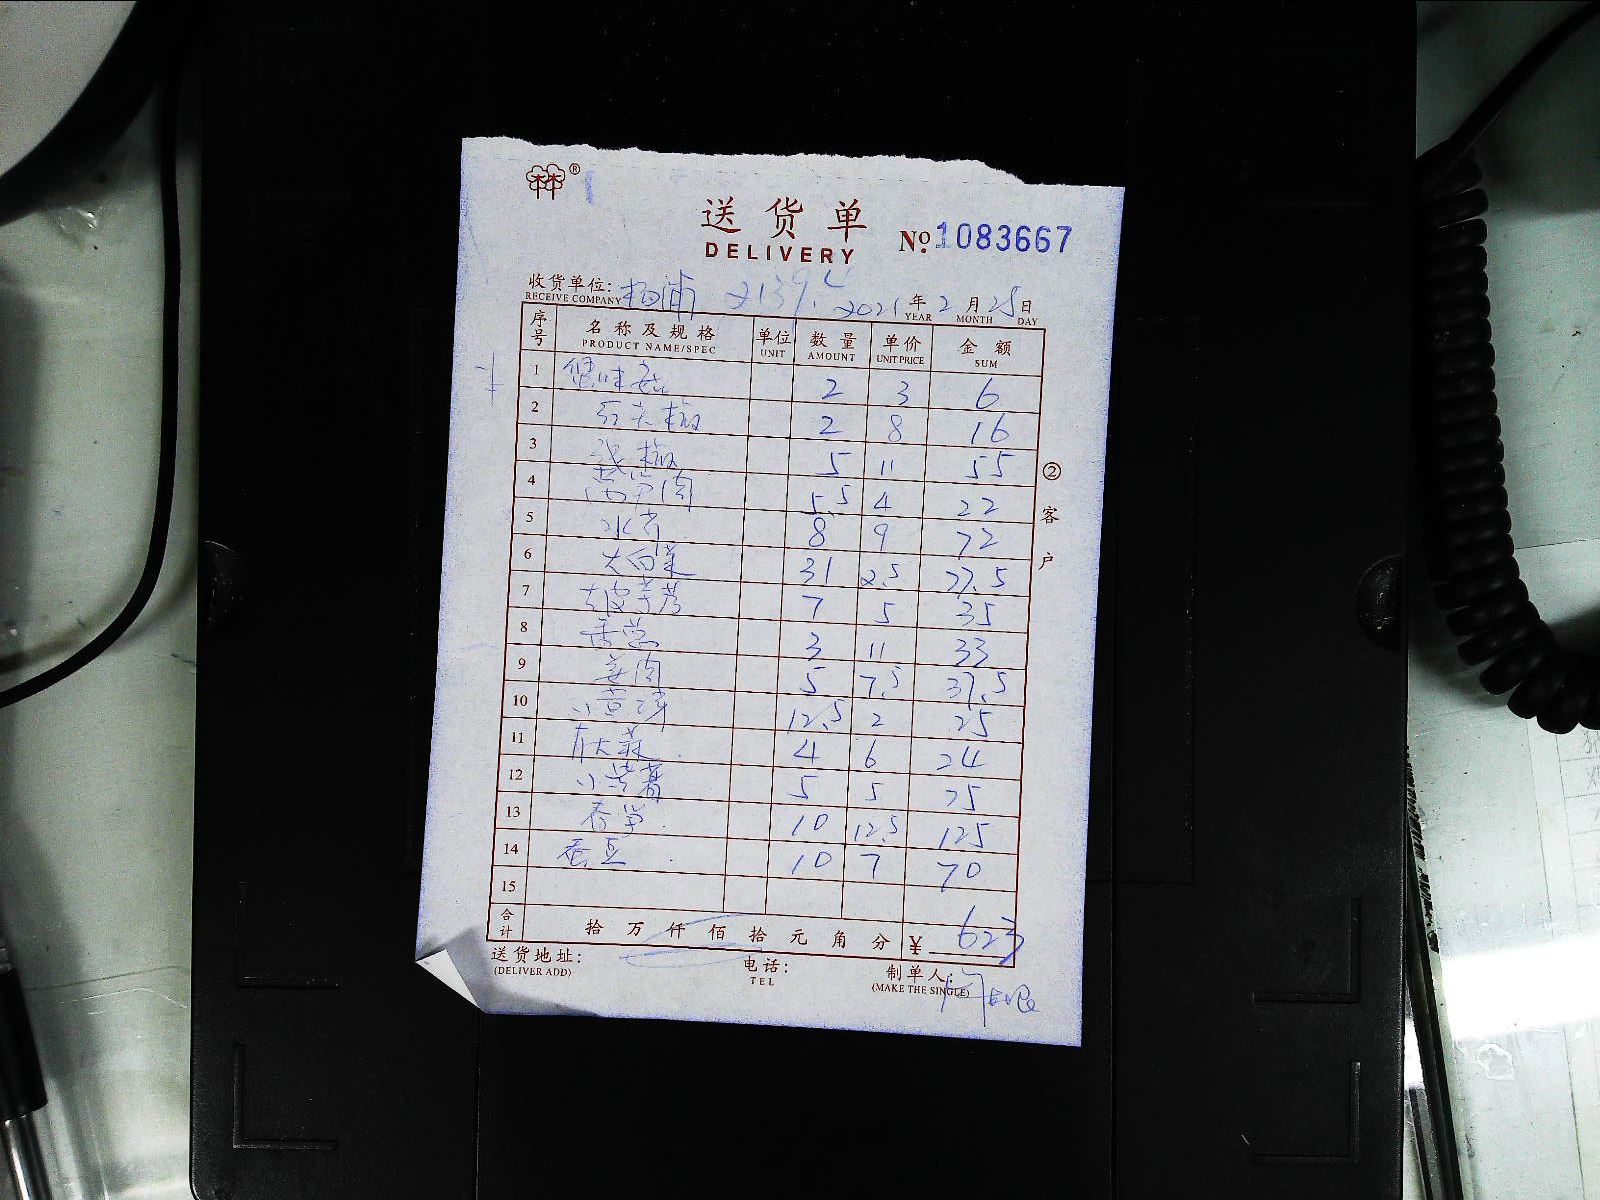 ®
送货单
DELIVERY
No. 1083667
收货单位: 杨浦 2139.4 2021年2月25日
RECEIVE COMPANY YEAR MONTH DAY
序号 名称及规格 单位 数量 单价 金额
PRODUCT NAME/SPEC UNIT AMOUNT UNIT PRICE SUM
1 蟹味菇 2 3 6
2 红尖椒 2 8 16
3 椒 5 11 55
4 5.5 4 22
5 水芹 8 9 72
6 大白菜 31 2.5 77.5
7 7 5 35
8 香葱 3 11 33
9 姜肉 5 7.5 37.5
10 小 12.5 2 25
11 4 6 24
12 小 5 5 25
13 春笋 10 12.5 125
14 蚕豆 10 7 70
15
合计 拾万仟佰拾元角分 ¥623
送货地址: 电话: 制单人:
(DELIVER ADD) TEL (MAKE THE SINGLE)
②客户